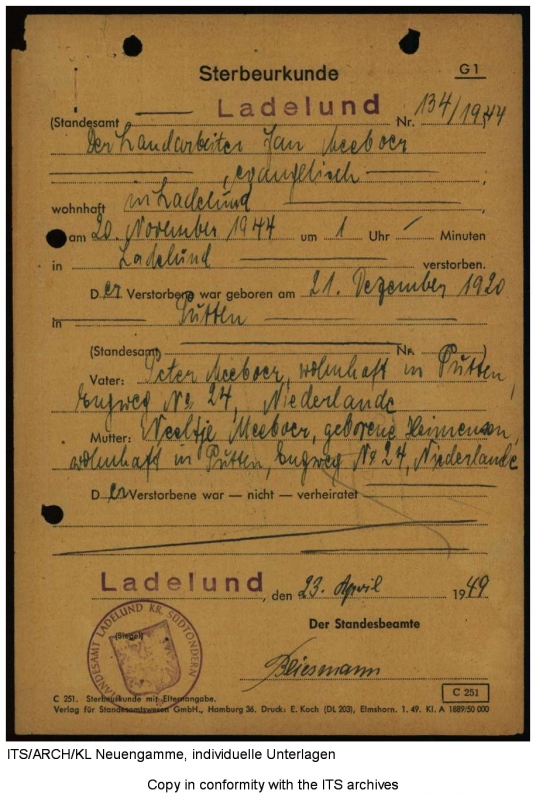 Sterbeurkunde
G 1
(Standesamt Ladelund Nr. 134/1944
Der Landarbeiter Jan Meeboer
, evangelisch ;
wohnhaft in Ladelund ,
am 20. November 1944 um 1 Uhr - Minuten
in Ladelund verstorben.
D er Verstorbene war geboren am 21. Dezember 1920
in Putten
(Standesamt Nr. )
Vater: Peter Meeboer, wohnhaft in Putten,
Engweg No 24, Niederlande
Mutter: Neeltje Meeboer, geborene
wohnhaft in Putten, Engweg No 24, Niederlande
D er Verstorbene war — nicht — verheiratet
Ladelund, den 23. April 1949
Der Standesbeamte
(Siegel)
STANDESAMT LADELUND KR. SÜDTONDERN
C 251
C 251. Sterbeurkunde mit Elternangabe.
Verlag für Standesamtswesen GmbH., Hamburg 36. Druck: E. Koch (DL 203), Elmshorn. 1. 49. Kl. A 1889/50 000
ITS/ARCH/KL Neuengamme, individuelle Unterlagen
Copy in conformity with the ITS archives